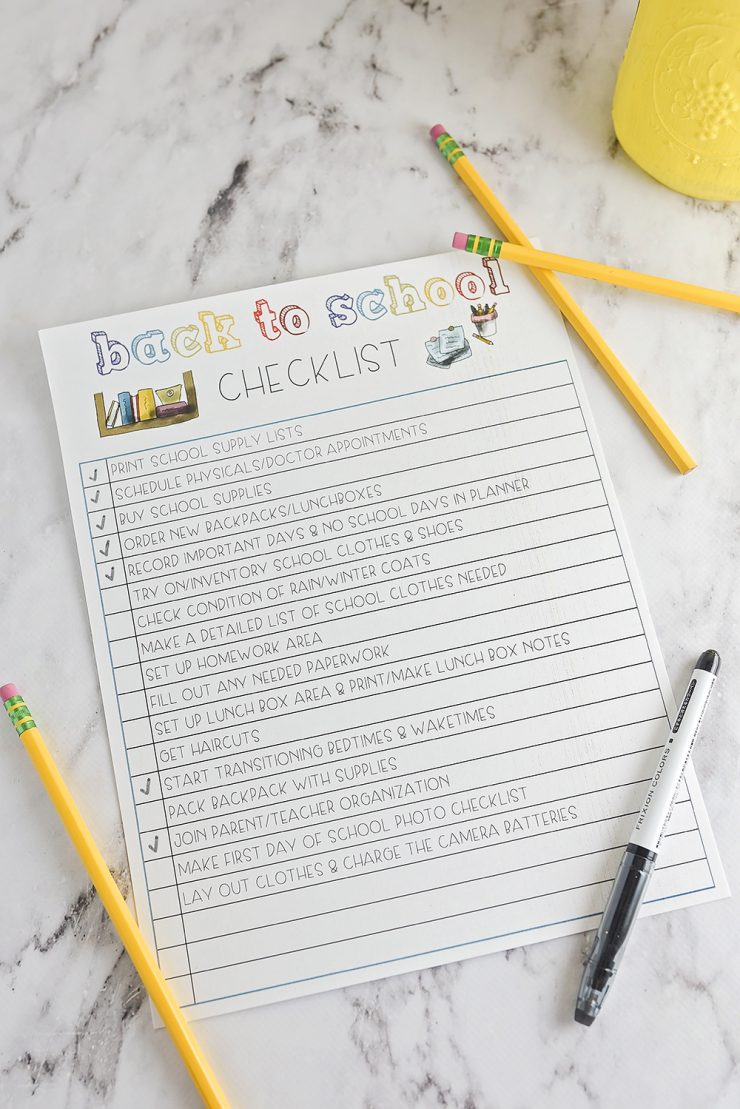 back to school
CHECKLIST
PRINT SCHOOL SUPPLY LISTS
SCHEDULE PHYSICALS/DOCTOR APPOINTMENTS
BUY SCHOOL SUPPLIES
ORDER NEW BACKPACKS/LUNCHBOXES
RECORD IMPORTANT DAYS & NO SCHOOL DAYS IN PLANNER
TRY ON/INVENTORY SCHOOL CLOTHES & SHOES
CHECK CONDITION OF RAIN/WINTER COATS
MAKE A DETAILED LIST OF SCHOOL CLOTHES NEEDED
SET UP HOMEWORK AREA
FILL OUT ANY NEEDED PAPERWORK
SET UP LUNCH BOX AREA & PRINT/MAKE LUNCH BOX NOTES
GET HAIRCUTS
START TRANSITIONING BEDTIMES & WAKETIMES
PACK BACKPACK WITH SUPPLIES
JOIN PARENT/TEACHER ORGANIZATION
MAKE FIRST DAY OF SCHOOL PHOTO CHECKLIST
LAY OUT CLOTHES & CHARGE THE CAMERA BATTERIES
FRIXION COLORS